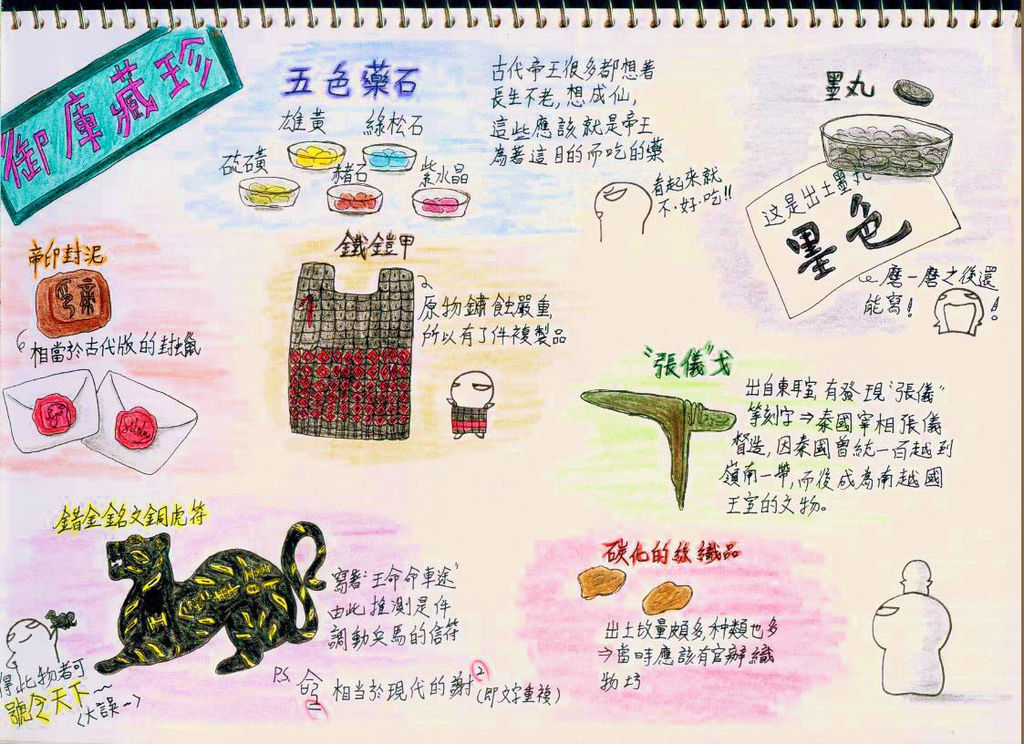 御庫藏珍
五色藥石
雄黃
綠松石
硫磺
赭石
紫水晶
古代帝王很多都想著
長生不老,想成仙,
這些應該就是帝王
為著這目的而吃的藥
看起來就
不·好·吃!!
墨丸
這是出土墨丸
墨色
磨一磨之後還
能寫!
帝印封泥
帝印
相當於古代版的封蠟
鐵鎧甲
原物鏽蝕嚴重,
所以有了件複製品
"張儀"戈
出自東耳室,有發現"張儀"
等刻字⇒秦國宰相張儀
督造,因秦國曾統一百越到
嶺南一帶,而後成為南越國
王室的文物。
錯金銘文銅虎符
寫著"王命命車徒"
由此推測是件
調動兵馬的信符
P.S. 命= 相当於現代的謝² (即文字重複)
得此物者可
號令天下~
(大誤~)
碳化的絲織品
出土數量頗多,種類也多
⇒當時應該有官辦織
物坊